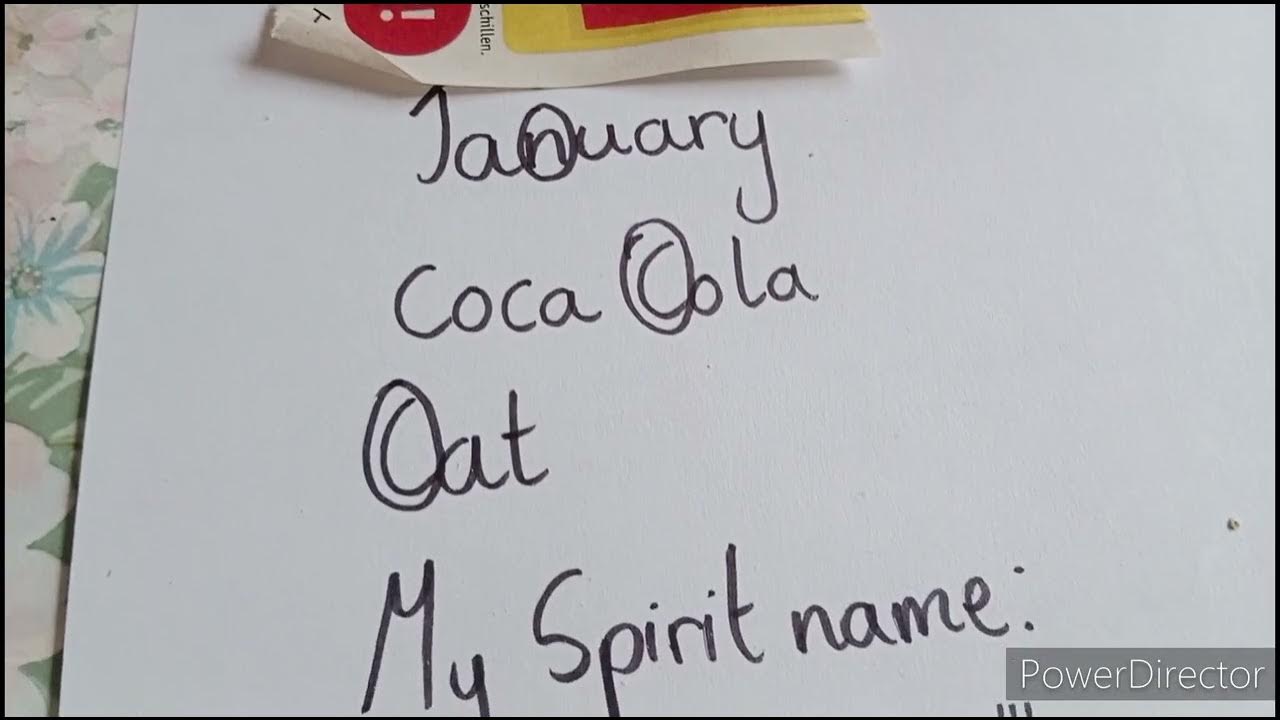 schillen.
!
January
Coca Cola
Cat
My Spirit name:
PowerDirector